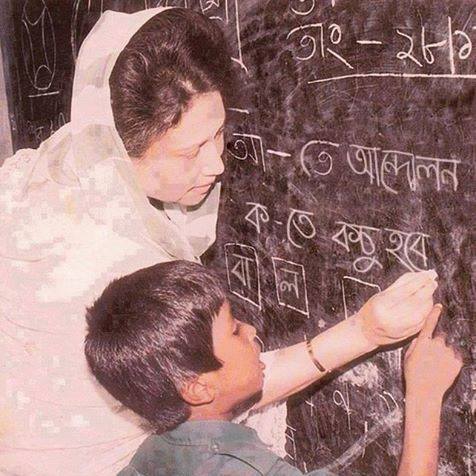 তাং - ২৮/
আ - তে আন্দোলন
ক - তে কষ্ট হবে
বা ল